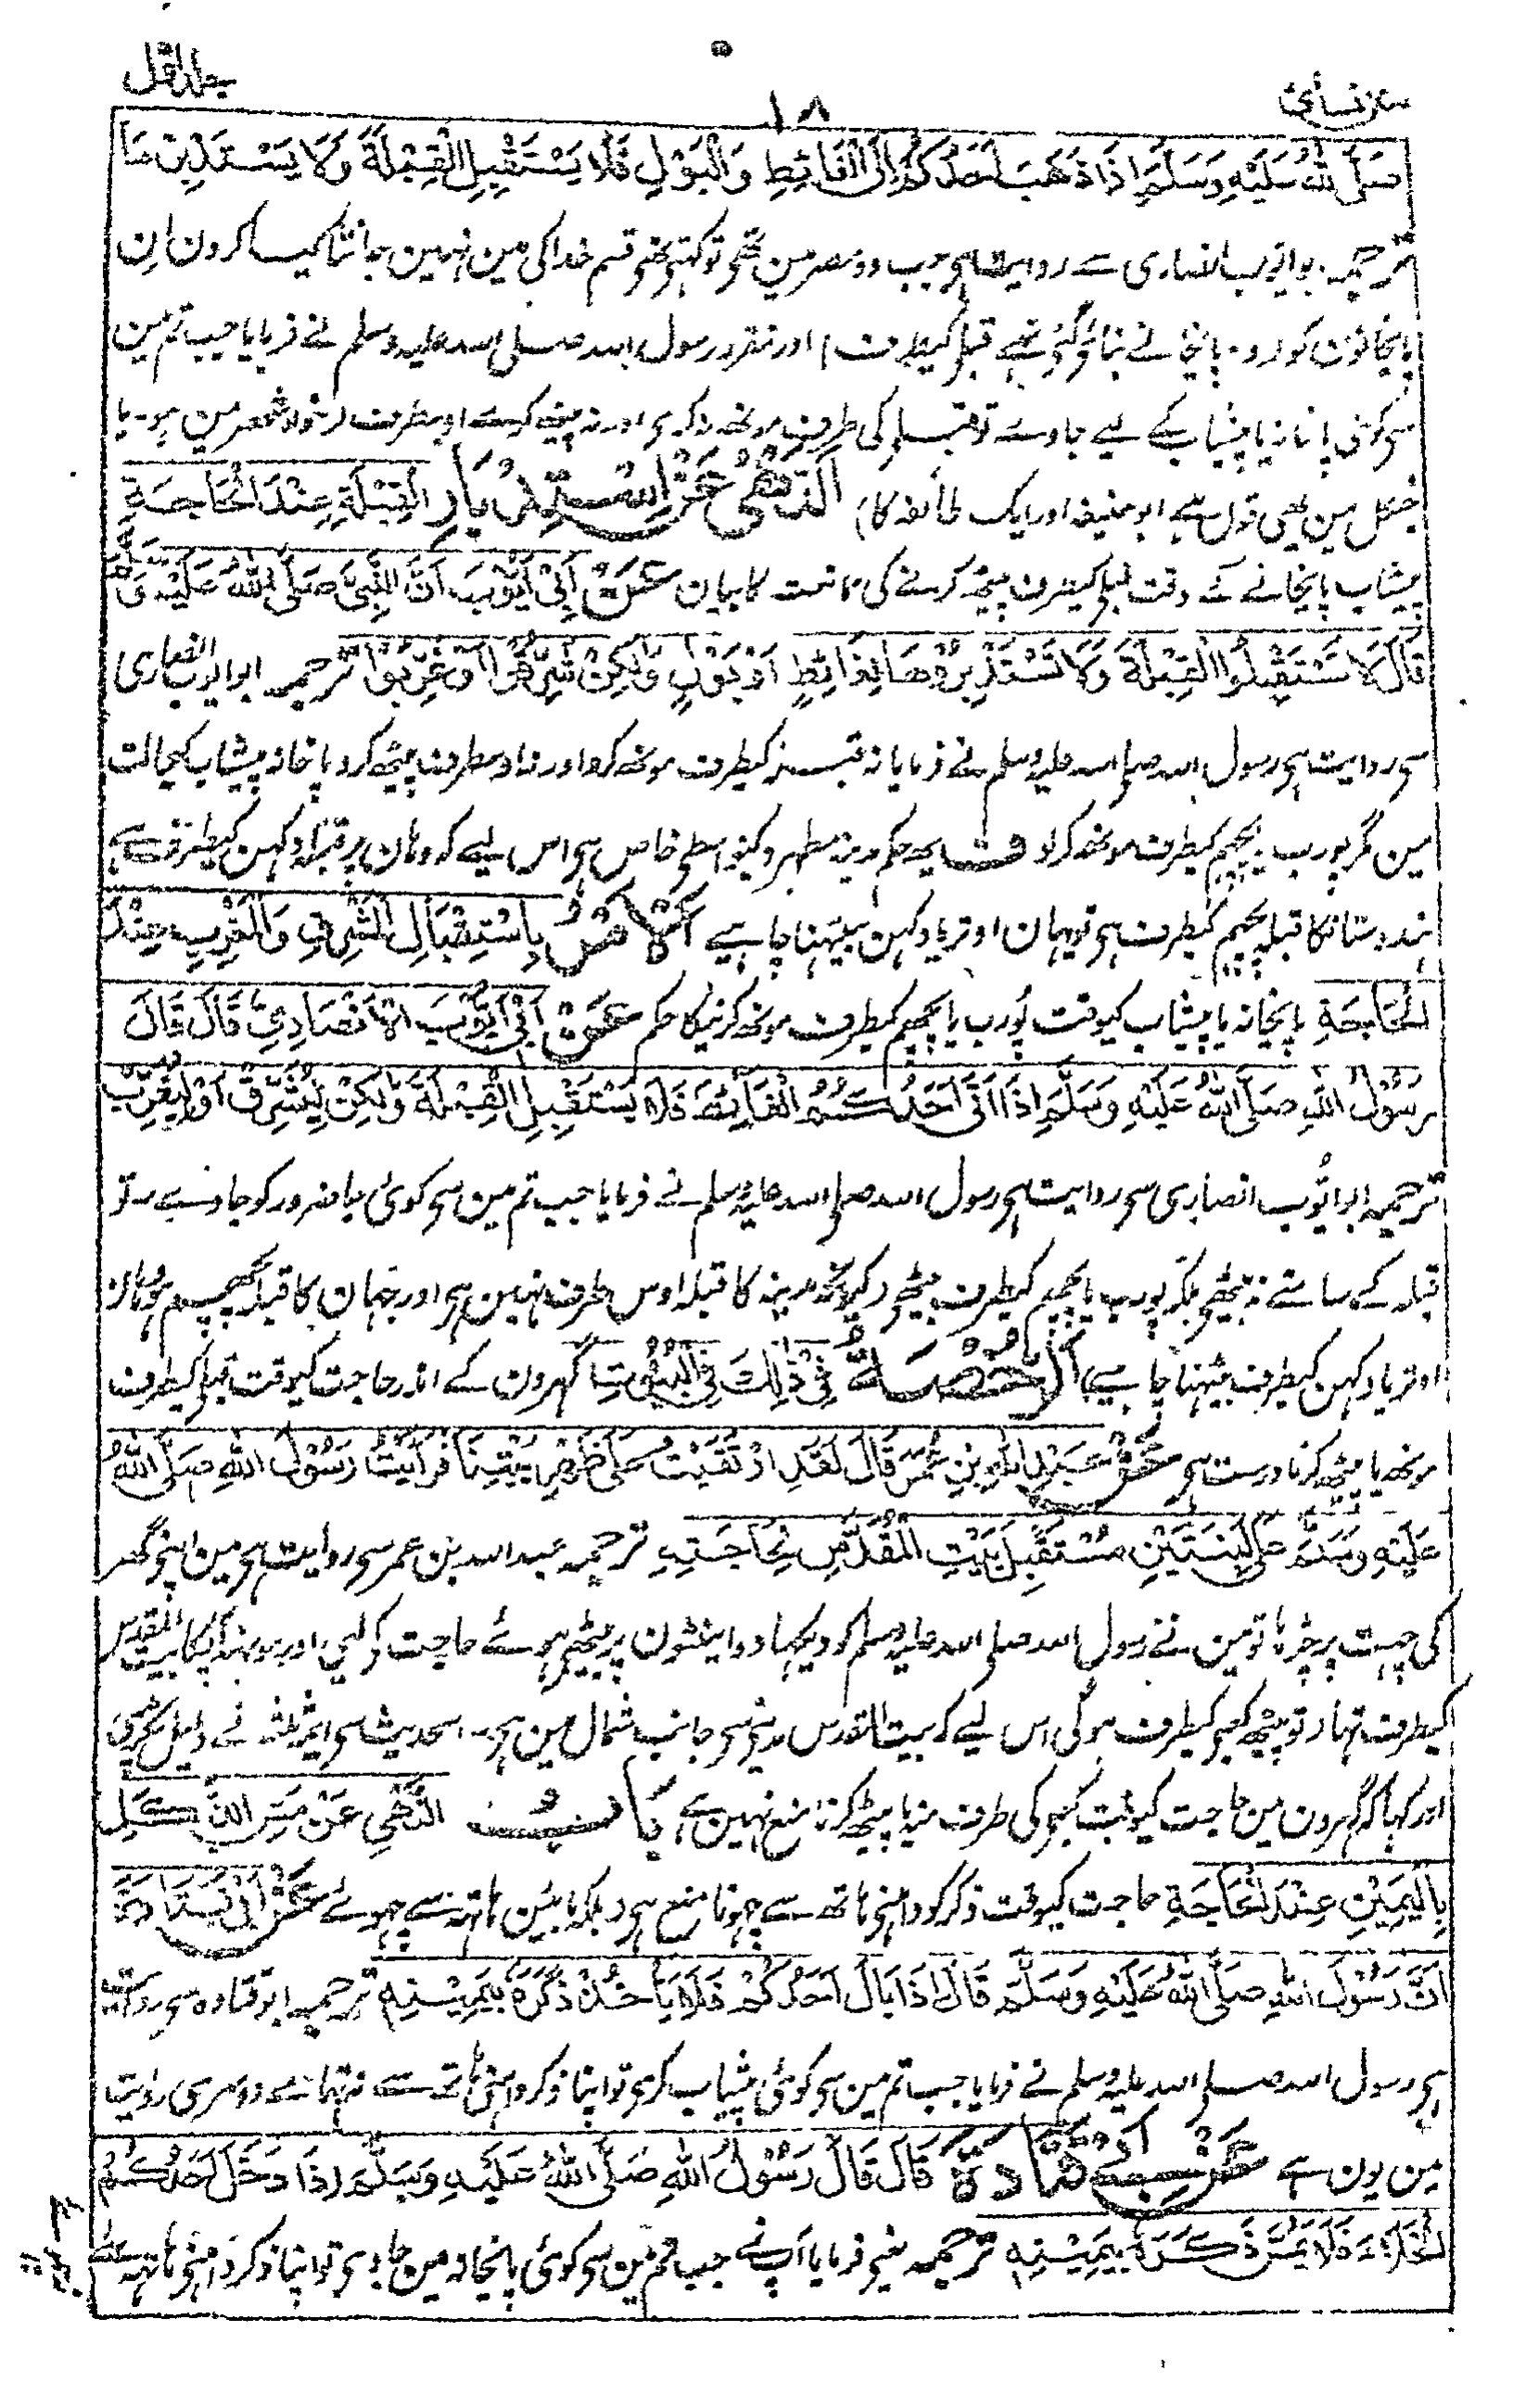 سنن نسائی ۱۸ جلد اول
صَلَّى اللهُ عَلَيْهِ وَسَلَّمَ اِذَا ذَهَبَ اَحَدُكُمْ اِلَى الْغَائِطِ وَالْبَوْلِ فَلَا يَسْتَقْبِلِ الْقِبْلَةَ وَلَا يَسْتَدْبِرْهَا
ترجمہ۔ ابو ایوب انصاری سے روایت ہی جب وہ مصر مین تھی تو کہتی تھی قسم خدا کی مین نہین جانتا کیسا کرون ان
پایخانون کو (وہ پایخانے بنائی گئی تھے قبلہ کیطرف) اور مقرر رسول اسد صلی اسد علیہ وسلم نے فرمایا جب تم مین
سی کوئی پایخانہ یا پیشاب کے لیے جاوے تو قبلہ کی طرف مونھ نہ کری اور نہ پیٹھ کرے اوسطرف (خواہ شھر مین ہو یا
جنگل مین یھی قول ہے ابو حنیفہ اور ایک طائفہ کا) اَلنَّهْيُ عَنِ اسْتِدْبَارِ الْقِبْلَةِ عِنْدَ الْحَاجَةِ
پیشاب پایخانے کے وقت قبلہ کیطرف پیٹھ کرنے کی ممانعت کا بیان عَنْ اَبِيْ اَيُّوْبَ اَنَّ النَّبِيَّ صَلَّى اللهُ عَلَيْهِ وَسَلَّمَ
قَالَ لَا تَسْتَقْبِلُوا الْقِبْلَةَ وَلَا تَسْتَدْبِرُوْهَا بِغَائِطٍ اَوْ بَوْلٍ وَلٰكِنْ شَرِّقُوْا اَوْ غَرِّبُوْا ترجمہ ابو ایوب انصاری
سی روایت ہی رسول اسد صلی اسد علیہ وسلم نے فرمایا نہ قبلہ کیطرف مونھ کرو اور نہ اوسطرف پیٹھ کرو پاخانہ پیشاب کیحالت
مین مگر پورب یا پچھم کیطرف مونھ کر لو ف یہ حکم مدینہ مطہرہ کیواسطی خاص ہی اس لیے کہ وہان پر قبلہ دکہن کیطرف ہے
ہندوستان کا قبلہ پچھم کیطرف ہی تو یہان اوتر یا دکہن بیٹہنا چاہیے اَلْاَمْرُ بِاسْتِقْبَالِ الْمَشْرِقِ وَالْمَغْرِبِ عِنْدَ
الْحَاجَةِ پایخانہ یا پیشاب کیوقت پورب یا پچھم کیطرف مونھ کرنیکا حکم عَنْ اَبِيْ اَيُّوْبَ الْاَنْصَارِيِّ قَالَ قَالَ
رَسُوْلُ اللهِ صَلَّى اللهُ عَلَيْهِ وَسَلَّمَ اِذَا اَتٰى اَحَدُكُمُ الْغَائِطَ فَلَا يَسْتَقْبِلِ الْقِبْلَةَ وَلٰكِنْ لِيُشَرِّقْ اَوْ لِيُغَرِّبْ
ترجمہ ابو ایوب انصاری سی روایت ہی رسول اسد صلی اسد علیہ وسلم نے فرمایا جب تم مین سی کوئی جا ضرور کو جاوے تو
قبلہ کے سامنے نہ بیٹھی بلکہ پورب یا پچھم کیطرف بیٹھی (کیونکہ مدینہ کا قبلہ اوس طرف نہین ہی اور جہان کا قبلہ پچھم ہو وہان
اوتر یا دکہن کیطرف بیٹہنا چاہیے) اَلرُّخْصَةُ فِيْ ذٰلِكَ فِي الْبُيُوْتِ گہرون کے اندر حاجت کیوقت قبلہ کیطرف
مونھ یا پیٹھ کرنا درست ہی عَنْ عَبْدِ اللهِ بْنِ عُمَرَ قَالَ لَقَدِ ارْتَقَيْتُ عَلٰى ظَهْرِ بَيْتِنَا فَرَاَيْتُ رَسُوْلَ اللهِ صَلَّى اللهُ
عَلَيْهِ وَسَلَّمَ عَلٰى لَبِنَتَيْنِ مُسْتَقْبِلَ بَيْتِ الْمَقْدِسِ لِحَاجَتِهٖ ترجمہ عبد اسد بن عمر سی روایت ہی مین اپنی گھر
کی چہت پر چڑہا تو مین نے رسول اسد صلی اسد علیہ وسلم کو دیکہا دو اینٹون پر بیٹھی ہوئے حاجت کو لیی اور مونھ آپکا بیت المقدس
کیطرف تہا (تو پیٹھ کعبی کیطرف ہوگی اس لیے کہ بیت المقدس مدینی سی جانب شمال مین ہی۔ اسحدیث سی ایمہ ثلثہ نے دلیل پکڑی ہی
اور کہا کہ گہرون مین حاجت کیوقت کعبی کی طرف منہ یا پیٹھ کرنا منع نہین ہے بَابُ النَّهْيِ عَنْ مَسِّ الذَّكَرِ
بِالْيَمِيْنِ عِنْدَ الْحَاجَةِ حاجت کیوقت ذکر کو داہنی ہاتھ سے چہونا منع ہی (بلکہ بائین ہاتہہ سے چہوئے عَنْ اَبِيْ قَتَادَةَ
اَنَّ رَسُوْلَ اللهِ صَلَّى اللهُ عَلَيْهِ وَسَلَّمَ قَالَ اِذَا بَالَ اَحَدُكُمْ فَلَا يَاْخُذْ ذَكَرَهٗ بِيَمِيْنِهٖ ترجمہ ابو قتادہ سی روایت
ہی رسول اسد صلی اسد علیہ وسلم نے فرمایا جب تم مین سی کوئی پیشاب کری تو اپنا ذکر داہنی ہاتھ سے نہ تہامے دوسری روایت
مین یون ہے عَنْ اَبِيْ قَتَادَةَ قَالَ قَالَ رَسُوْلُ اللهِ صَلَّى اللهُ عَلَيْهِ وَسَلَّمَ اِذَا دَخَلَ اَحَدُكُمُ
الْخَلَاءَ فَلَا يَمَسَّ ذَكَرَهٗ بِيَمِيْنِهٖ ترجمہ یعنی فرمایا آپ نے جب تم مین سی کوئی پایخانہ مین جاوی تو اپنا ذکر داہنی ہاتہہ سے